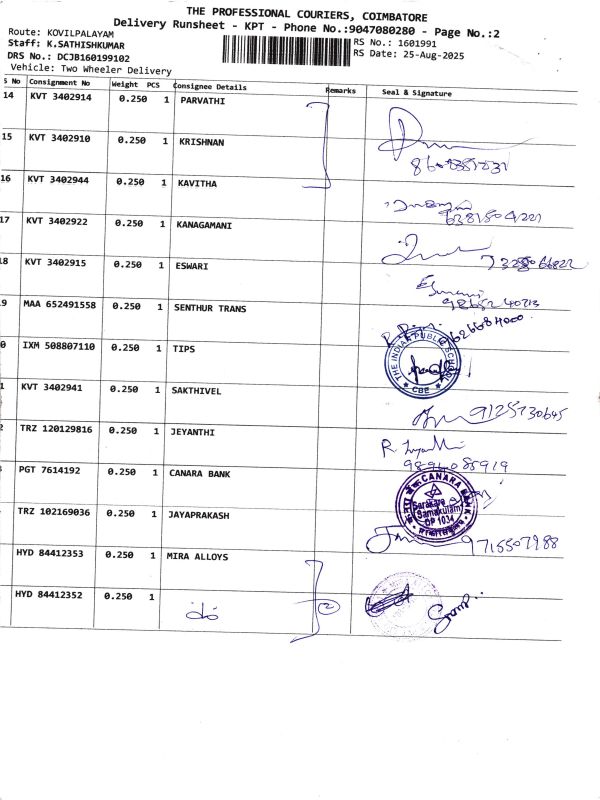 THE PROFESSIONAL COURIERS, COIMBATORE
Delivery Runsheet - KPT - Phone No.:9047080280 - Page No.:2
Route: KOVILPALAYAM
Staff: K.SATHISHKUMAR
RS No.: 1601991
DRS No.: DCJB160199102
RS Date: 25-Aug-2025
Vehicle: Two Wheeler Delivery
S No Consignment No Weight PCS Consignee Details Remarks Seal & Signature
14 KVT 3402914 0.250 1 PARVATHI
15 KVT 3402910 0.250 1 KRISHNAN
16 KVT 3402944 0.250 1 KAVITHA
17 KVT 3402922 0.250 1 KANAGAMANI
8 KVT 3402915 0.250 1 ESWARI
9 MAA 652491558 0.250 1 SENTHUR TRANS
0 IXM 508807110 0.250 1 TIPS
THE INDIAN PUBLIC SCHOOL
CBE
1 KVT 3402941 0.250 1 SAKTHIVEL
9125730645
2 TRZ 120129816 0.250 1 JEYANTHI
PGT 7614192 0.250 1 CANARA BANK
CANARA BANK
Sarakare
Samakulam
DP 1034
TRZ 102169036 0.250 1 JAYAPRAKASH
9715507988
HYD 84412353 0.250 1 MIRA ALLOYS
HYD 84412352 0.250 1
2